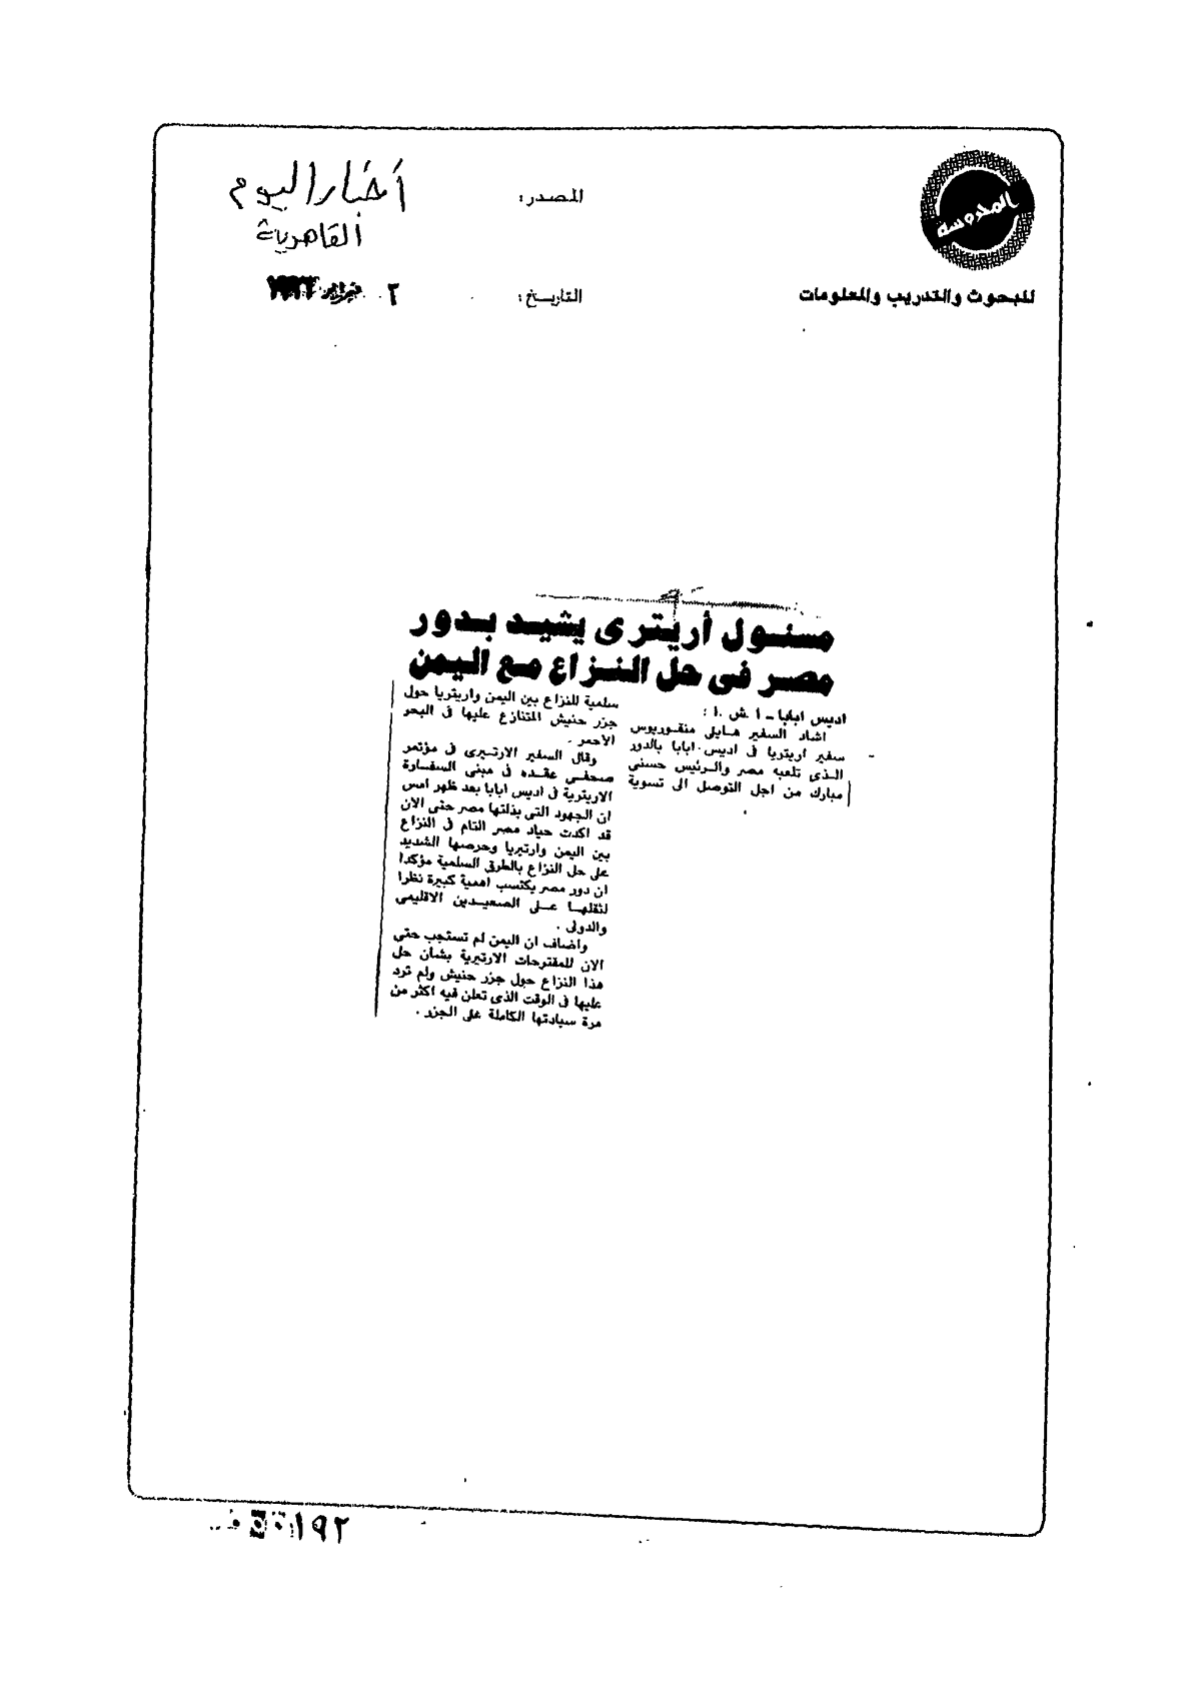 المحروسة
للبحوث والتدريب والمعلومات
المصدر:
أخبار اليوم
القاهرية
التاريخ:
٢ فبراير
مسئول أريترى يشيد بدور
مصر فى حل النزاع مع اليمن
اديس ابابا - ا . ش . ا :
اشاد السفير هايلى منقوريوس
سفير اريتريا فى اديس ابابا بالدور
الذى تلعبه مصر والرئيس حسنى
مبارك من اجل التوصل الى تسوية
سلمية للنزاع بين اليمن واريتريا حول
جزر حنيش المتنازع عليها فى البحر
الاحمر .
وقال السفير الارتيرى فى مؤتمر
صحفى عقده فى مبنى السفارة
الاريترية فى اديس ابابا بعد ظهر امس
ان الجهود التى بذلتها مصر حتى الان
قد اكدت حياد مصر التام فى النزاع
بين اليمن وارتيريا وحرصها الشديد
على حل النزاع بالطرق السلمية مؤكدا
ان دور مصر يكتسب اهمية كبيرة نظرا
لثقلها على الصعيدين الاقليمى
والدولى .
واضاف ان اليمن لم تستجب حتى
الان للمقترحات الارتيرية بشان حل
هذا النزاع حول جزر حنيش ولم ترد
عليها فى الوقت الذى تعلن فيه اكثر من
مرة سيادتها الكاملة على الجزر .
١٩٢